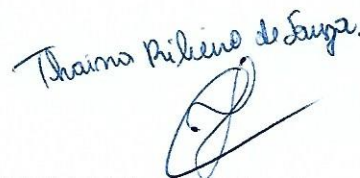 Thaina Ribeiro de Souza.